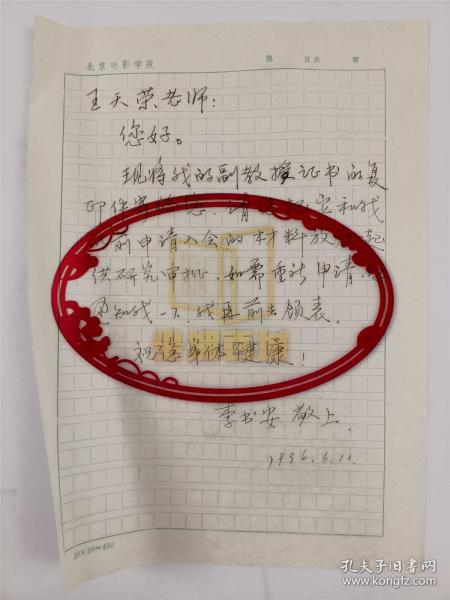 北京电影学院 第 页共 页
王天荣老师：
您好。
现将我的副教授证书的复
印件寄给您，请您把它和我
前申请入会的材料放 起
供研究审批，如需重新申请，
通知我一下，我再前去领表。
祝您身体健康！
李书安 敬上.
1996.6.11.
20×20=400
孔夫子旧书网
www.kongfz.com